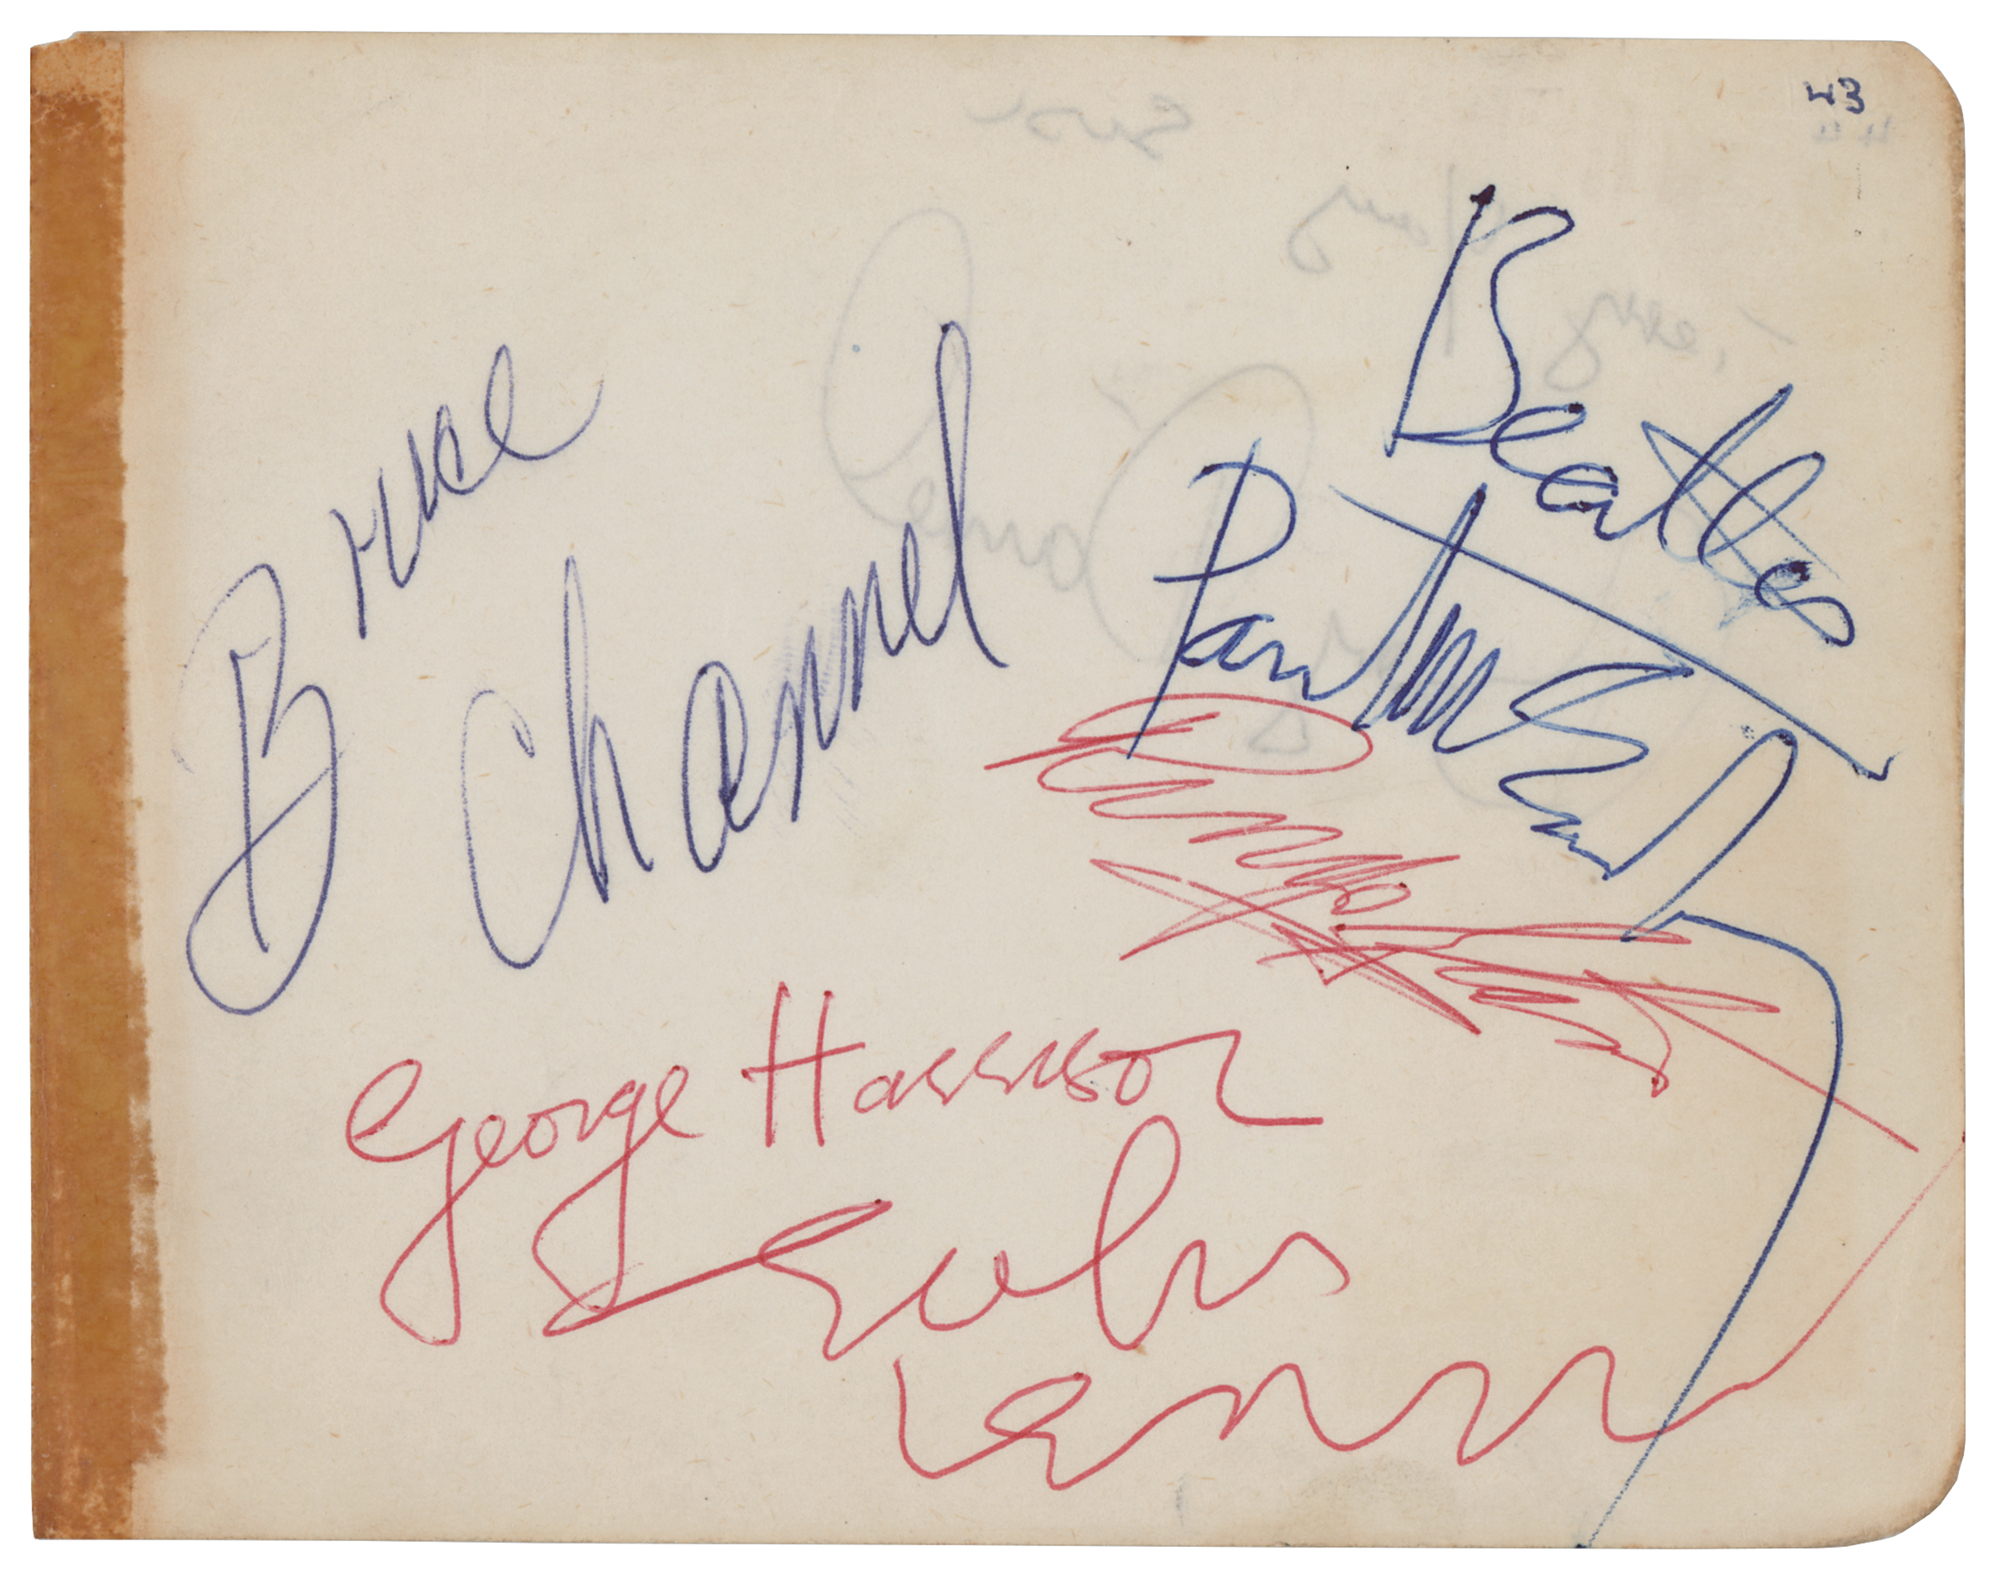 43
Beatles
Bruce
Channel
Paul McCartney
Ringo Starr
George Harrison
John
Lennon